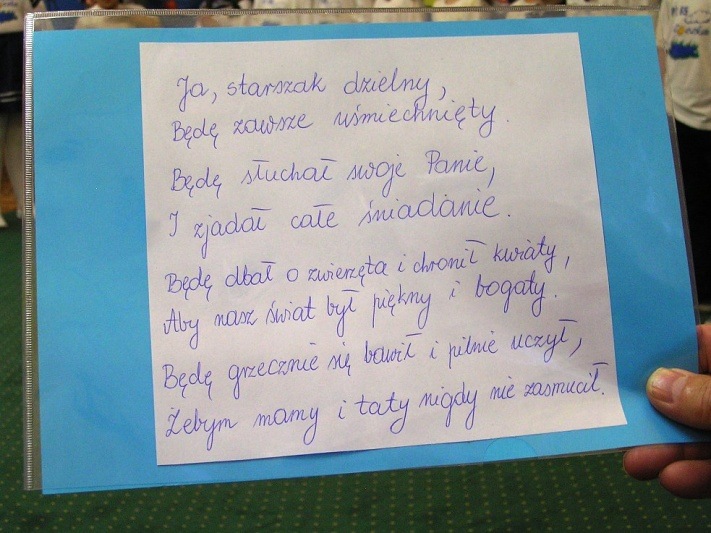 Ja, starszak dzielny,
Będę zawsze uśmiechnięty.
Będę słuchał swoje Panie,
I zjadał całe śniadanie.
Będę dbał o zwierzęta i chronił kwiaty,
Aby nasz świat był piękny i bogaty.
Będę grzecznie się bawił i pilnie uczył,
Żebym mamy i taty nigdy nie zasmucił.